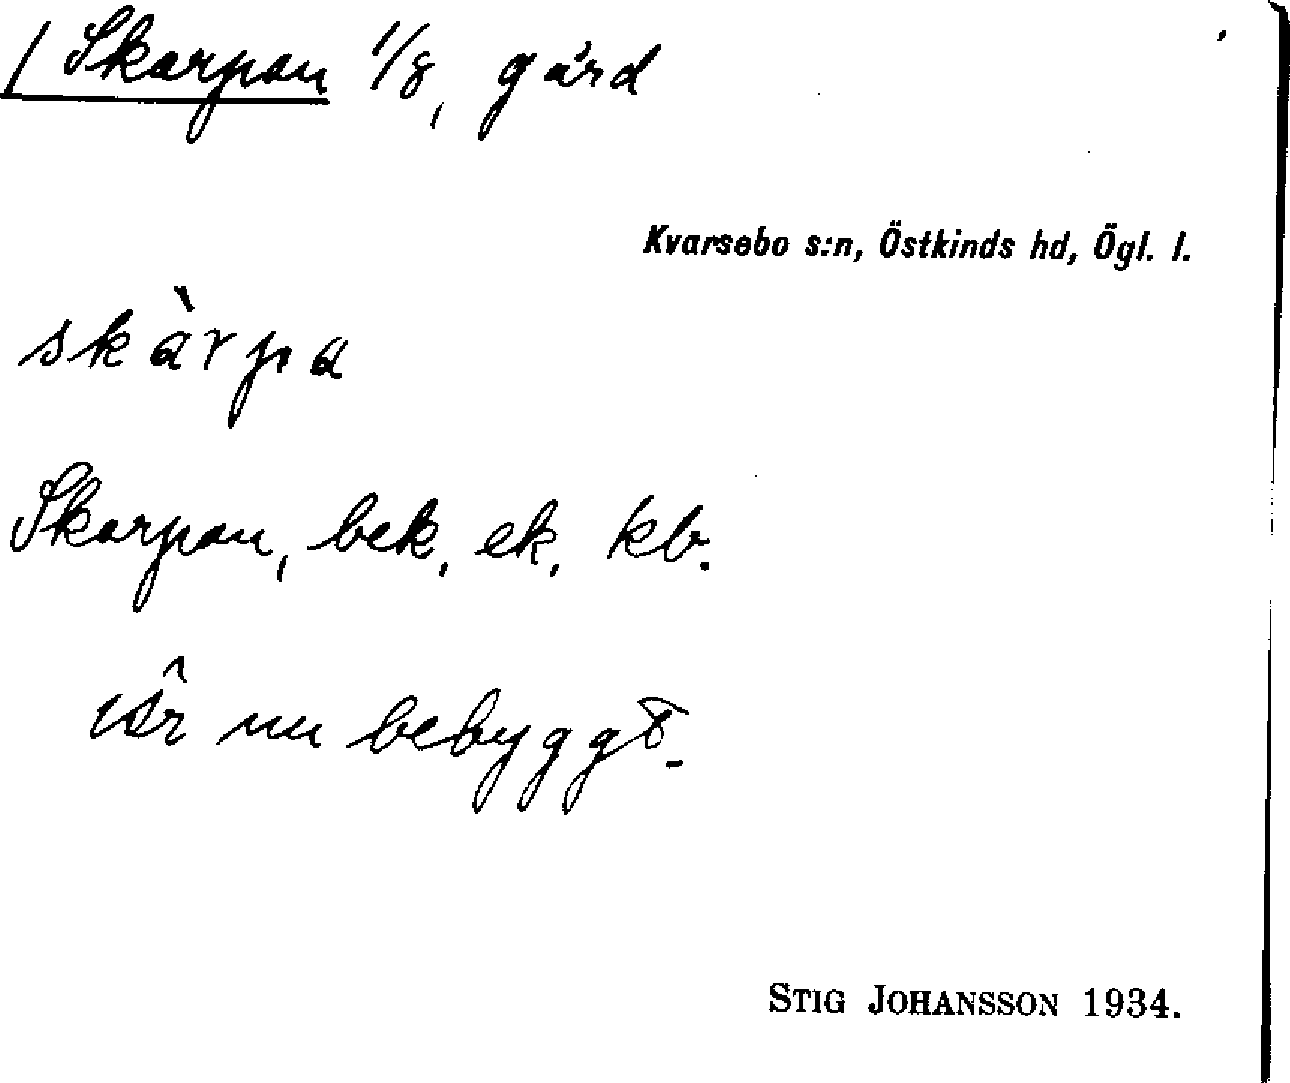 / Skarpan 1/8, gård
Kvarsebo s:n, Östkinds hd, Ögl. l.
skàrpa
Skarpan, bek, ek, kb.
är nu bebyggt.
STIG JOHANSSON 1934.